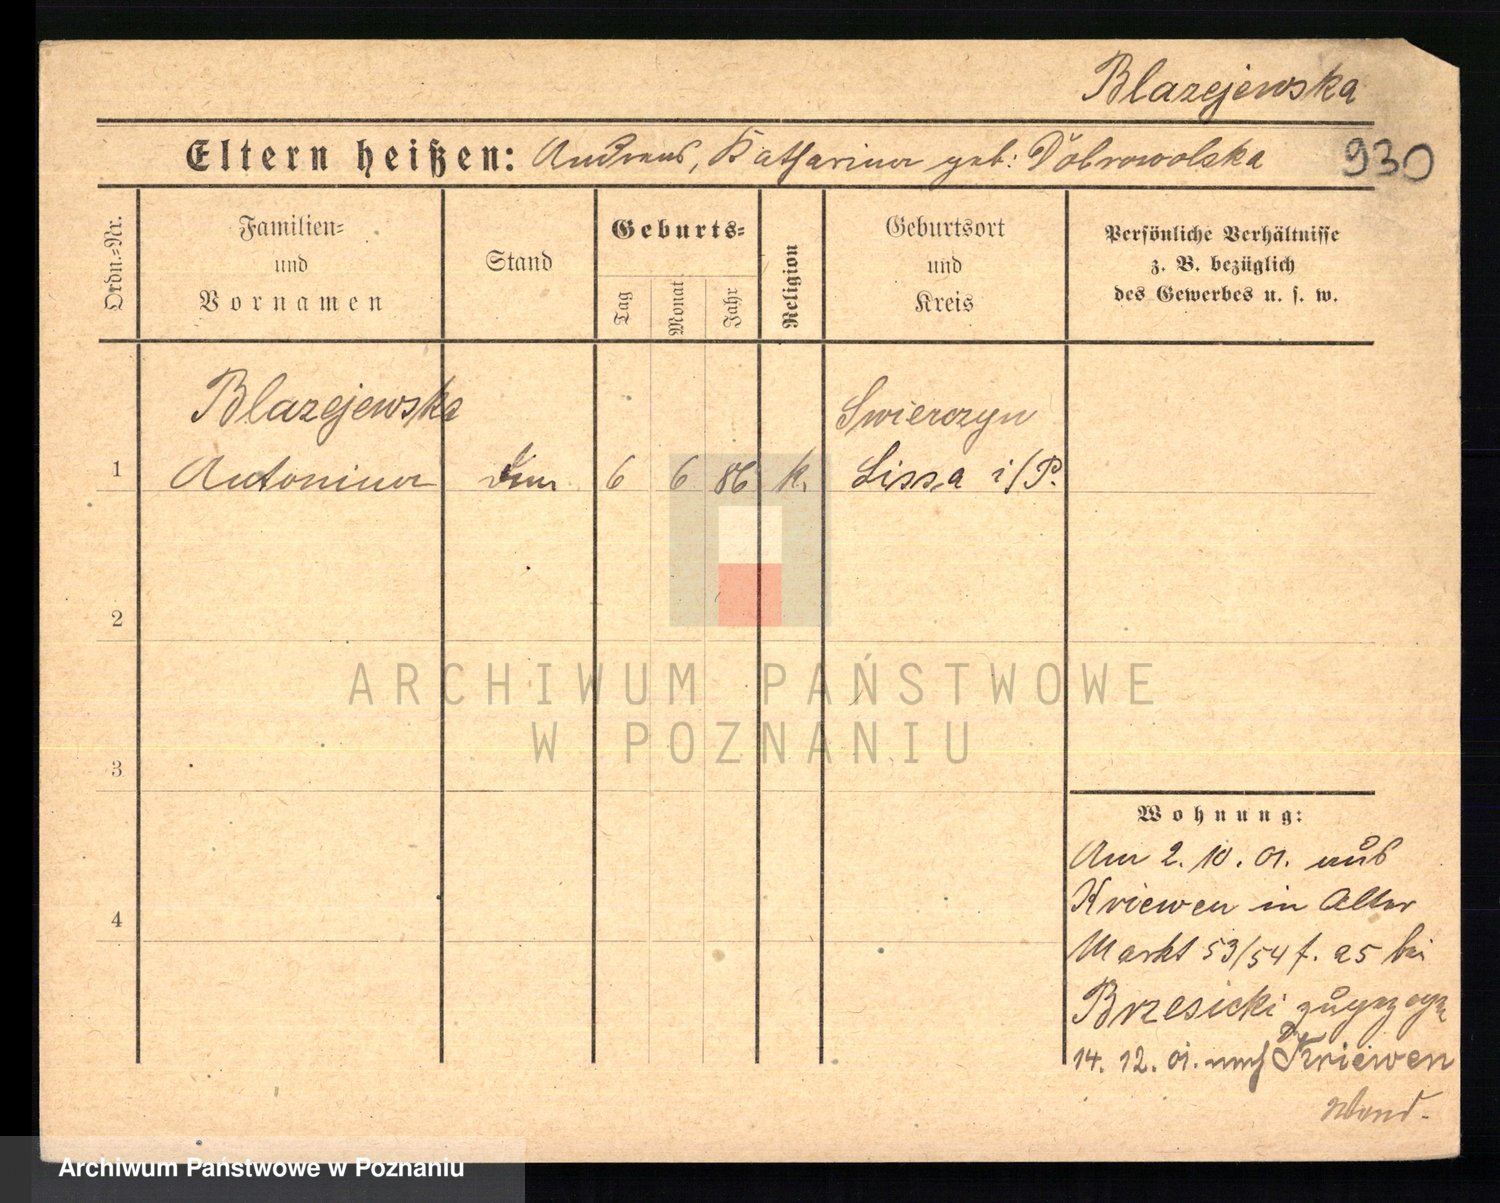 Blazejewska
Eltern heißen: Andreas, Katharina geb: Dobrowolska
930
Ordn.-Nr.
Familien-
und
Vornamen
Stand
Geburts-
Tag
Monat
Jahr
Religion
Geburtsort
und
Kreis
Persönliche Verhältnisse
z. B. bezüglich
des Gewerbes u. s. w.
Blazejewska
Swierczyn
1 Antonina 6 6 86 k. Lissa i/P.
2
3
4
Wohnung:
Am 2. 10. 01. aus
Kriewen in Alter
Markt 53/54 f. a5 bei
Brzesicki zugezogen
14. 12. 01. nach Kriewen
ARCHIWUM PAŃSTWOWE
W POZNANIU
Archiwum Państwowe w Poznaniu